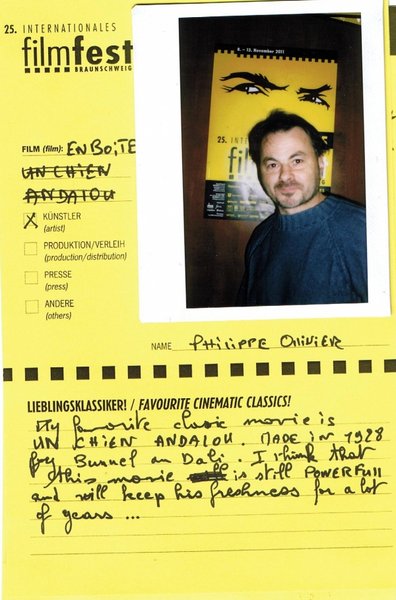 25. INTERNATIONALES
filmfest
BRAUNSCHWEIG
8. – 13. November 2011
25.
film
FILM (film): EN BOiTE
UN CHIEN
ANDALOU
X KÜNSTLER
(artist)
PRODUKTION/VERLEIH
(production/distribution)
PRESSE
(press)
ANDERE
(others)
NAME PHILIPPE OLLIVIER
LIEBLINGSKLASSIKER! / FAVOURITE CINEMATIC CLASSICS!
My favorite classic movie is
UN CHIEN ANDALOU. MADE IN 1928
by Bunuel an Dali. I think that
this movie is still POWERFULL
and will keep his freshness for a lot
of years ...